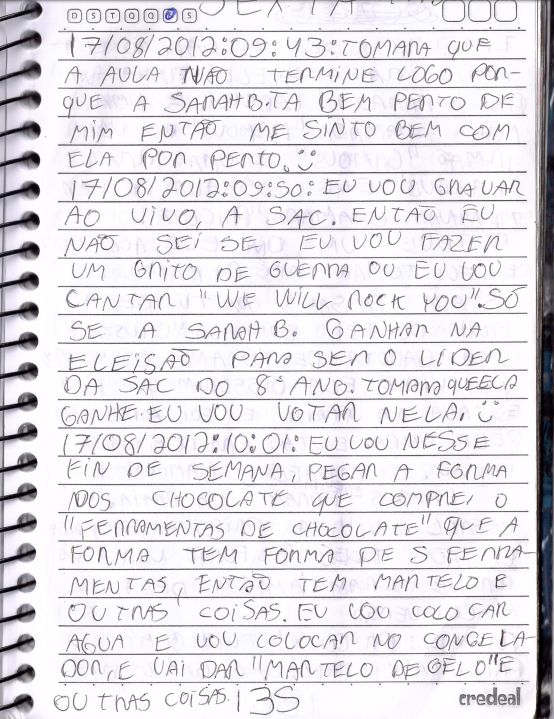 SEXTA
D S T Q Q S S
17/08/2012:09:43:TOMARA QUE
A AULA NÃO TERMINE LOGO POR-
QUE A SARAH B. TA BEM PERTO DE
MIM ENTÃO ME SINTO BEM COM
ELA POR PERTO. Ü
17/08/2012:09:50: EU VOU GRAVAR
AO VIVO, A SAC. ENTÃO EU
NÃO SEI SE EU VOU FAZER
UM GRITO DE GUERRA OU EU VOU
CANTAR "WE WILL ROCK YOU". SÓ
SE A SARAH B. GANHAR NA
ELEISÃO PARA SER O LIDER
DA SAC DO 8º ANO. TOMARA QUE ELA
GANHE. EU VOU VOTAR NELA. Ü
17/08/2012:10:01: EU VOU NESSE
FIN DE SEMANA, PEGAR A FORMA
DOS CHOCOLATE QUE COMPREI O
"FERRAMENTAS DE CHOCOLATE" QUE A
FORMA TEM FORMA DE 5 FERRA-
MENTAS, ENTÃO TEM MARTELO E
OUTRAS COISAS. EU VOU COLOCAR
AGUA E VOU COLOCAR NO CONGELA-
DOR, E VAI DAR "MARTELO DE GELO" E
OUTRAS COISAS. 135
credeal